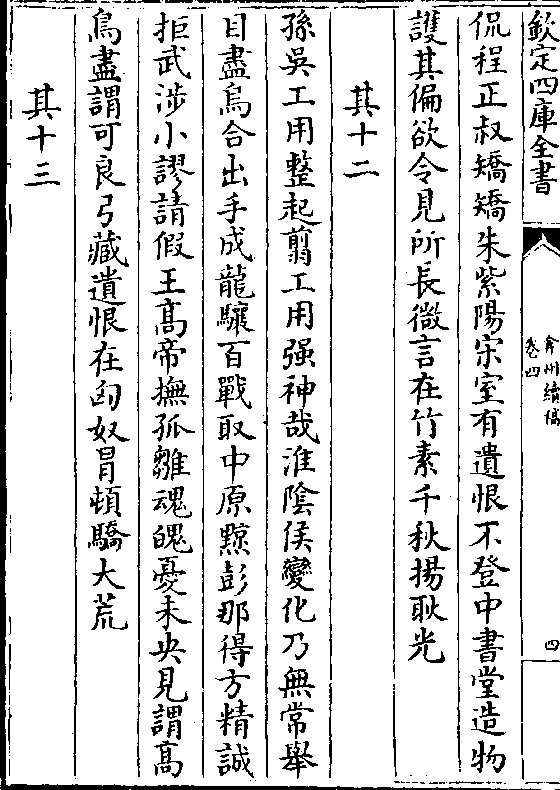 欽定四庫全書
弇州續稿
卷四
四
侃程正叔矯矯朱紫陽宋室有遺恨不登中書堂造物
護其偏欲令見所長微言在竹素千秋揚耿光
其十二
孫吳工用整起翦工用强神哉淮陰侯變化乃無常舉
目盡烏合出手成龍驤百戰取中原黥彭那得方精誠
拒武涉小謬請假王髙帝撫孤雛魂魄憂未央見謂髙
鳥盡謂可良弓藏遺恨在匈奴冒頓驕大荒
其十三